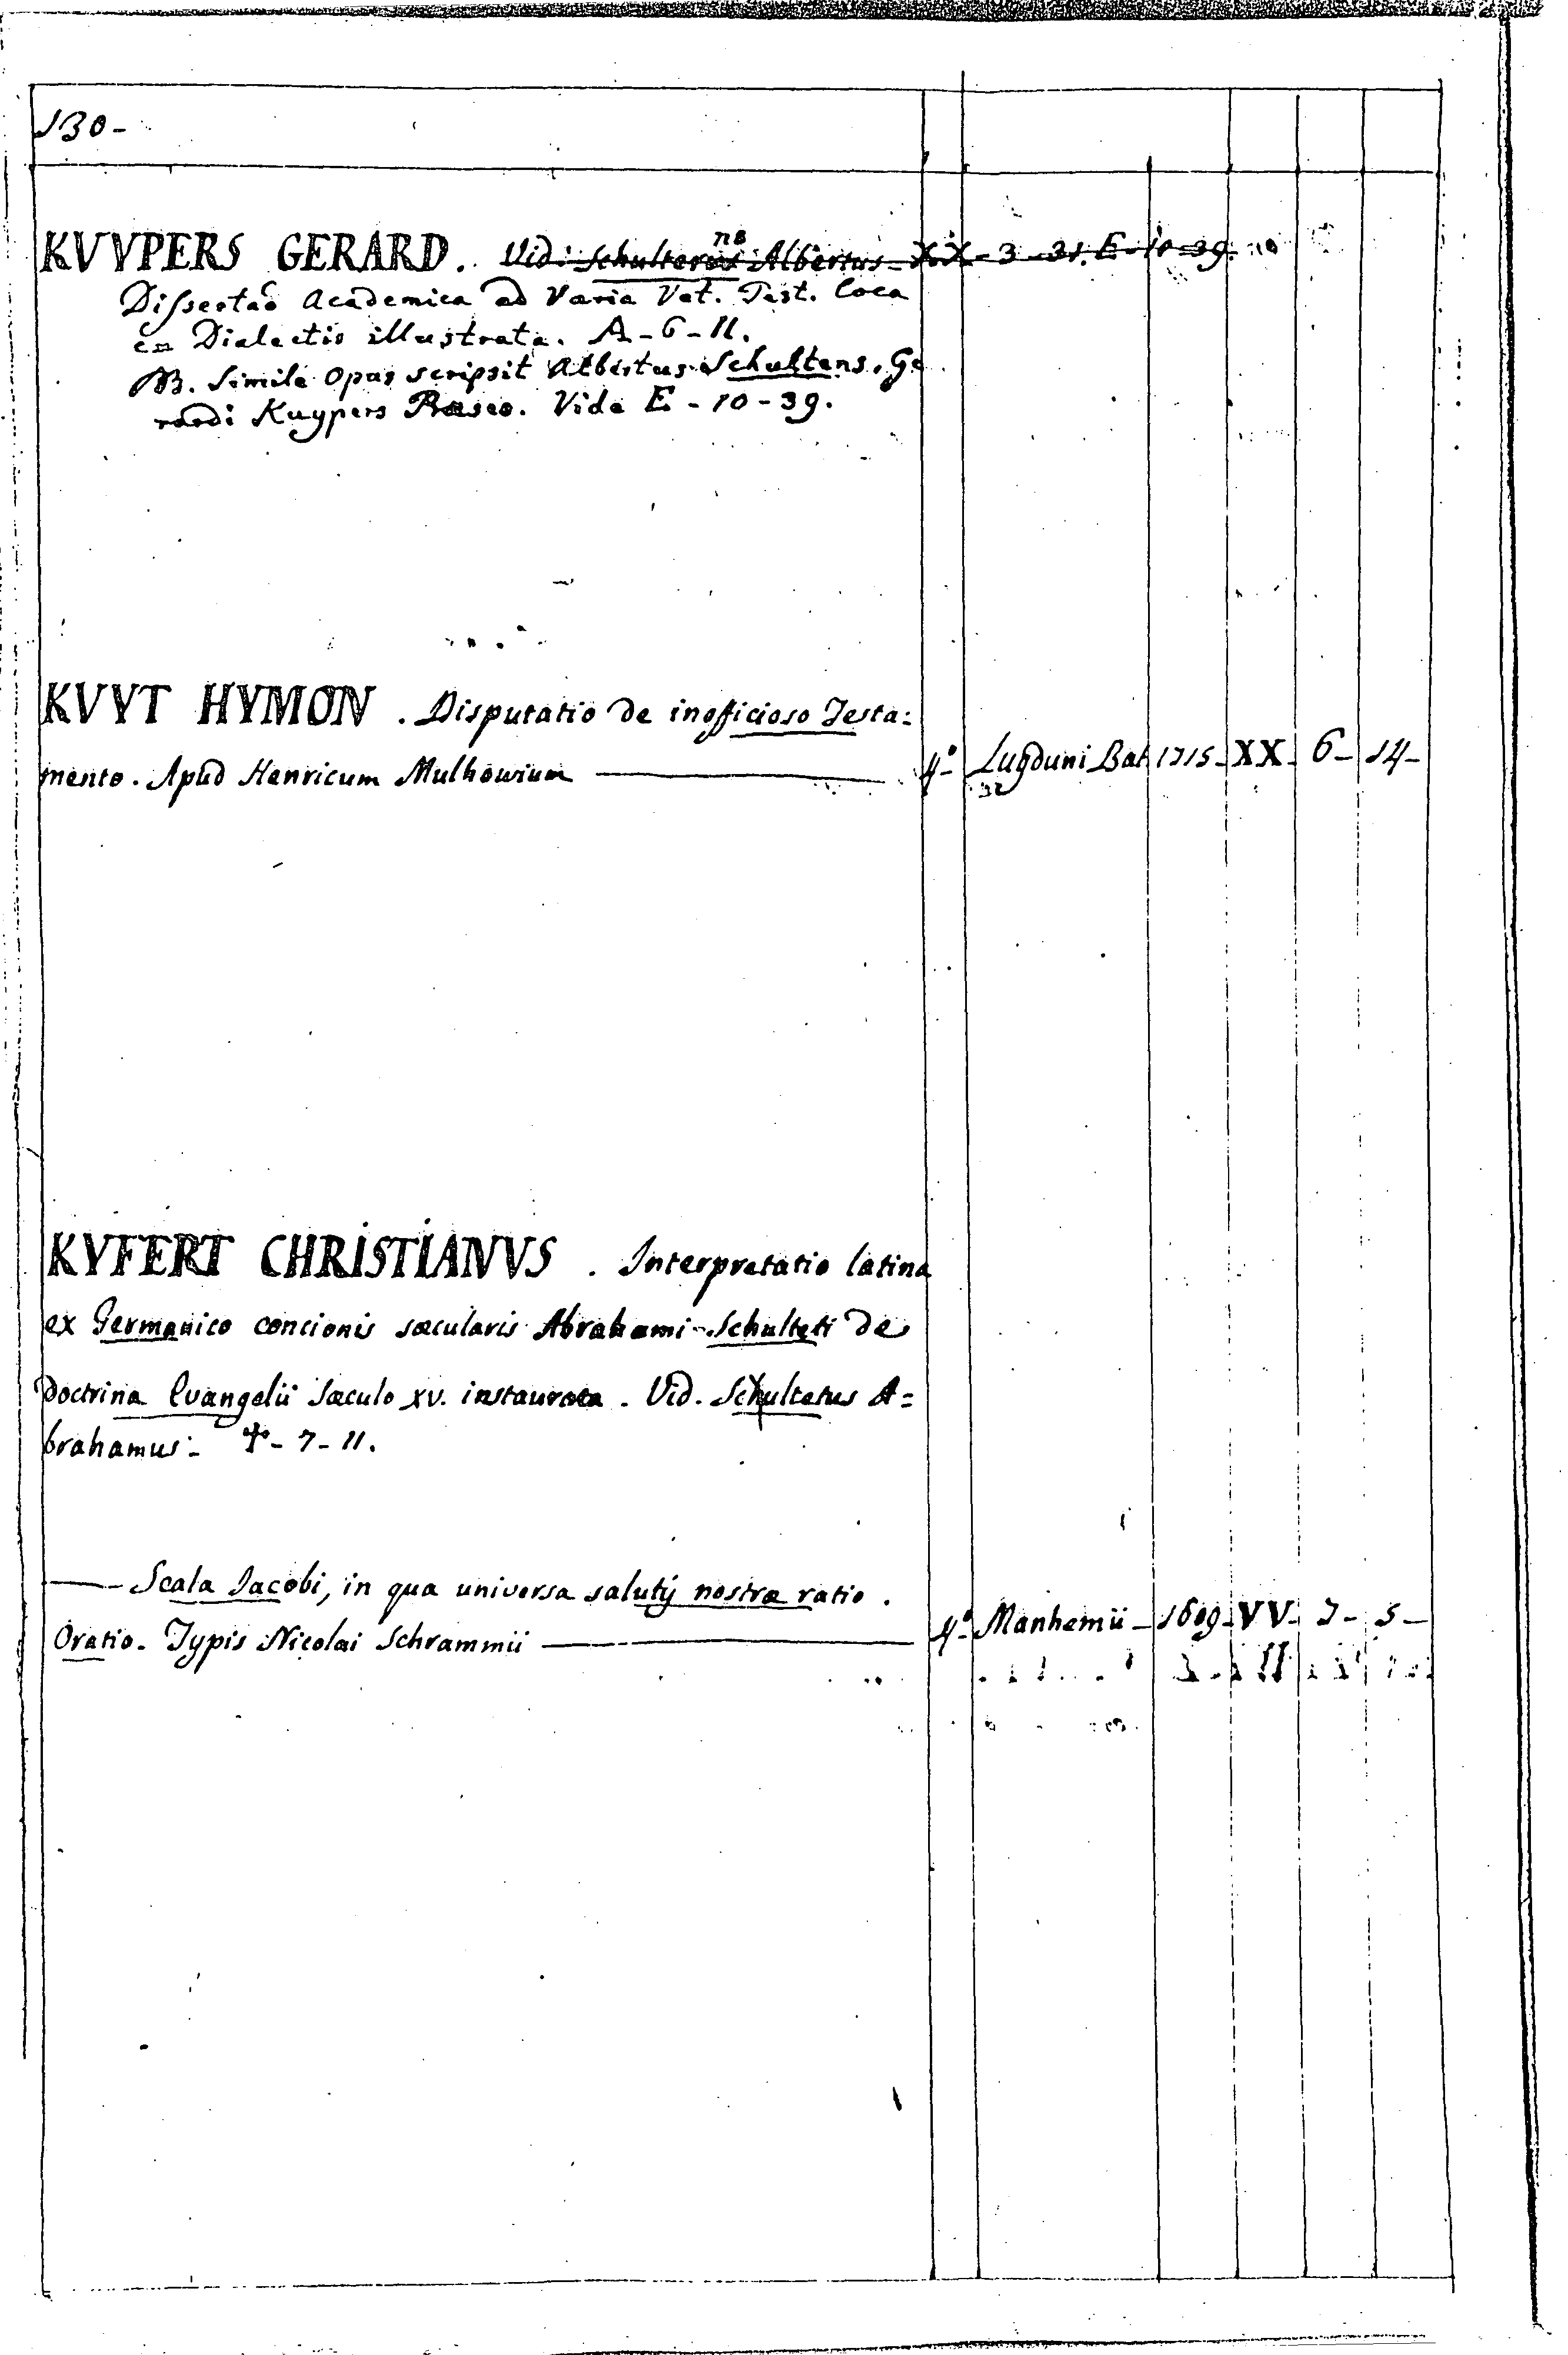 130-
KVYPERS GERARD. Vid: Schulterus Albertus - XX - 3 - 31. E - 10 - 39.
Dissertaõ Academica ad Varia Vet. Test. loca
ex Dialectis illustrata. A - 6 - 11.
NB. Simile Opus scripsit Albertus Schultens. Ge
rardi Kuypers Præses. Vide E - 10 - 39.
KVYT HYMON. Disputatio de inofficioso Testa=
mento. Apud Henricum Mulhovium 4º Lugduni Bat 1715 - XX - 6 - 14 -
KYFERT CHRISTIANVS. Interpretatio latina
ex Germanico concionis sæcularis Abrahami Schulteti de
Doctrina Evangelii Sæculo XV. instaurata. Vid. Schultetus A=
brahamus - 7 - 11.
Scala Jacobi, in qua universa salutis nostræ ratio.
Oratio. Typis Nicolai Schrammii 4º Manhemii - 1609 - VV - 7 - 5 -